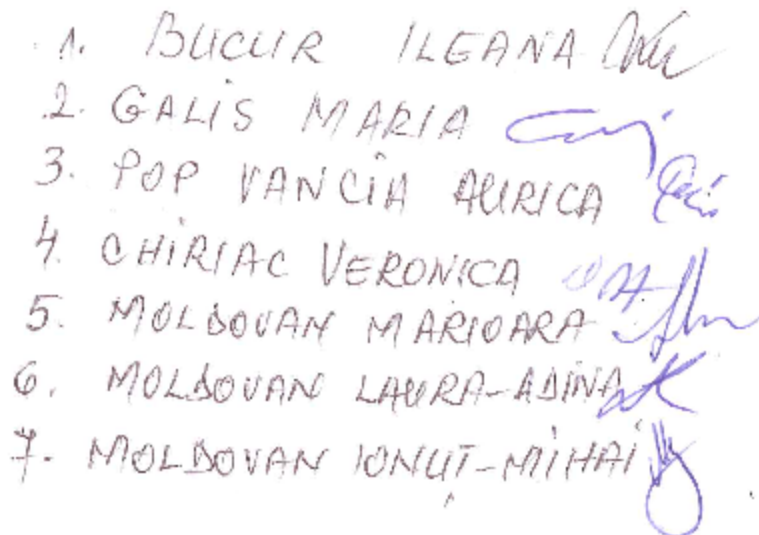 1. BUCUR ILEANA
2. GALIS MARIA
3. POP VANCIA AURICA
4. CHIRIAC VERONICA
5. MOLDOVAN MARIOARA
6. MOLDOVAN LAURA-ADINA
7. MOLDOVAN IONUȚ-MIHAI